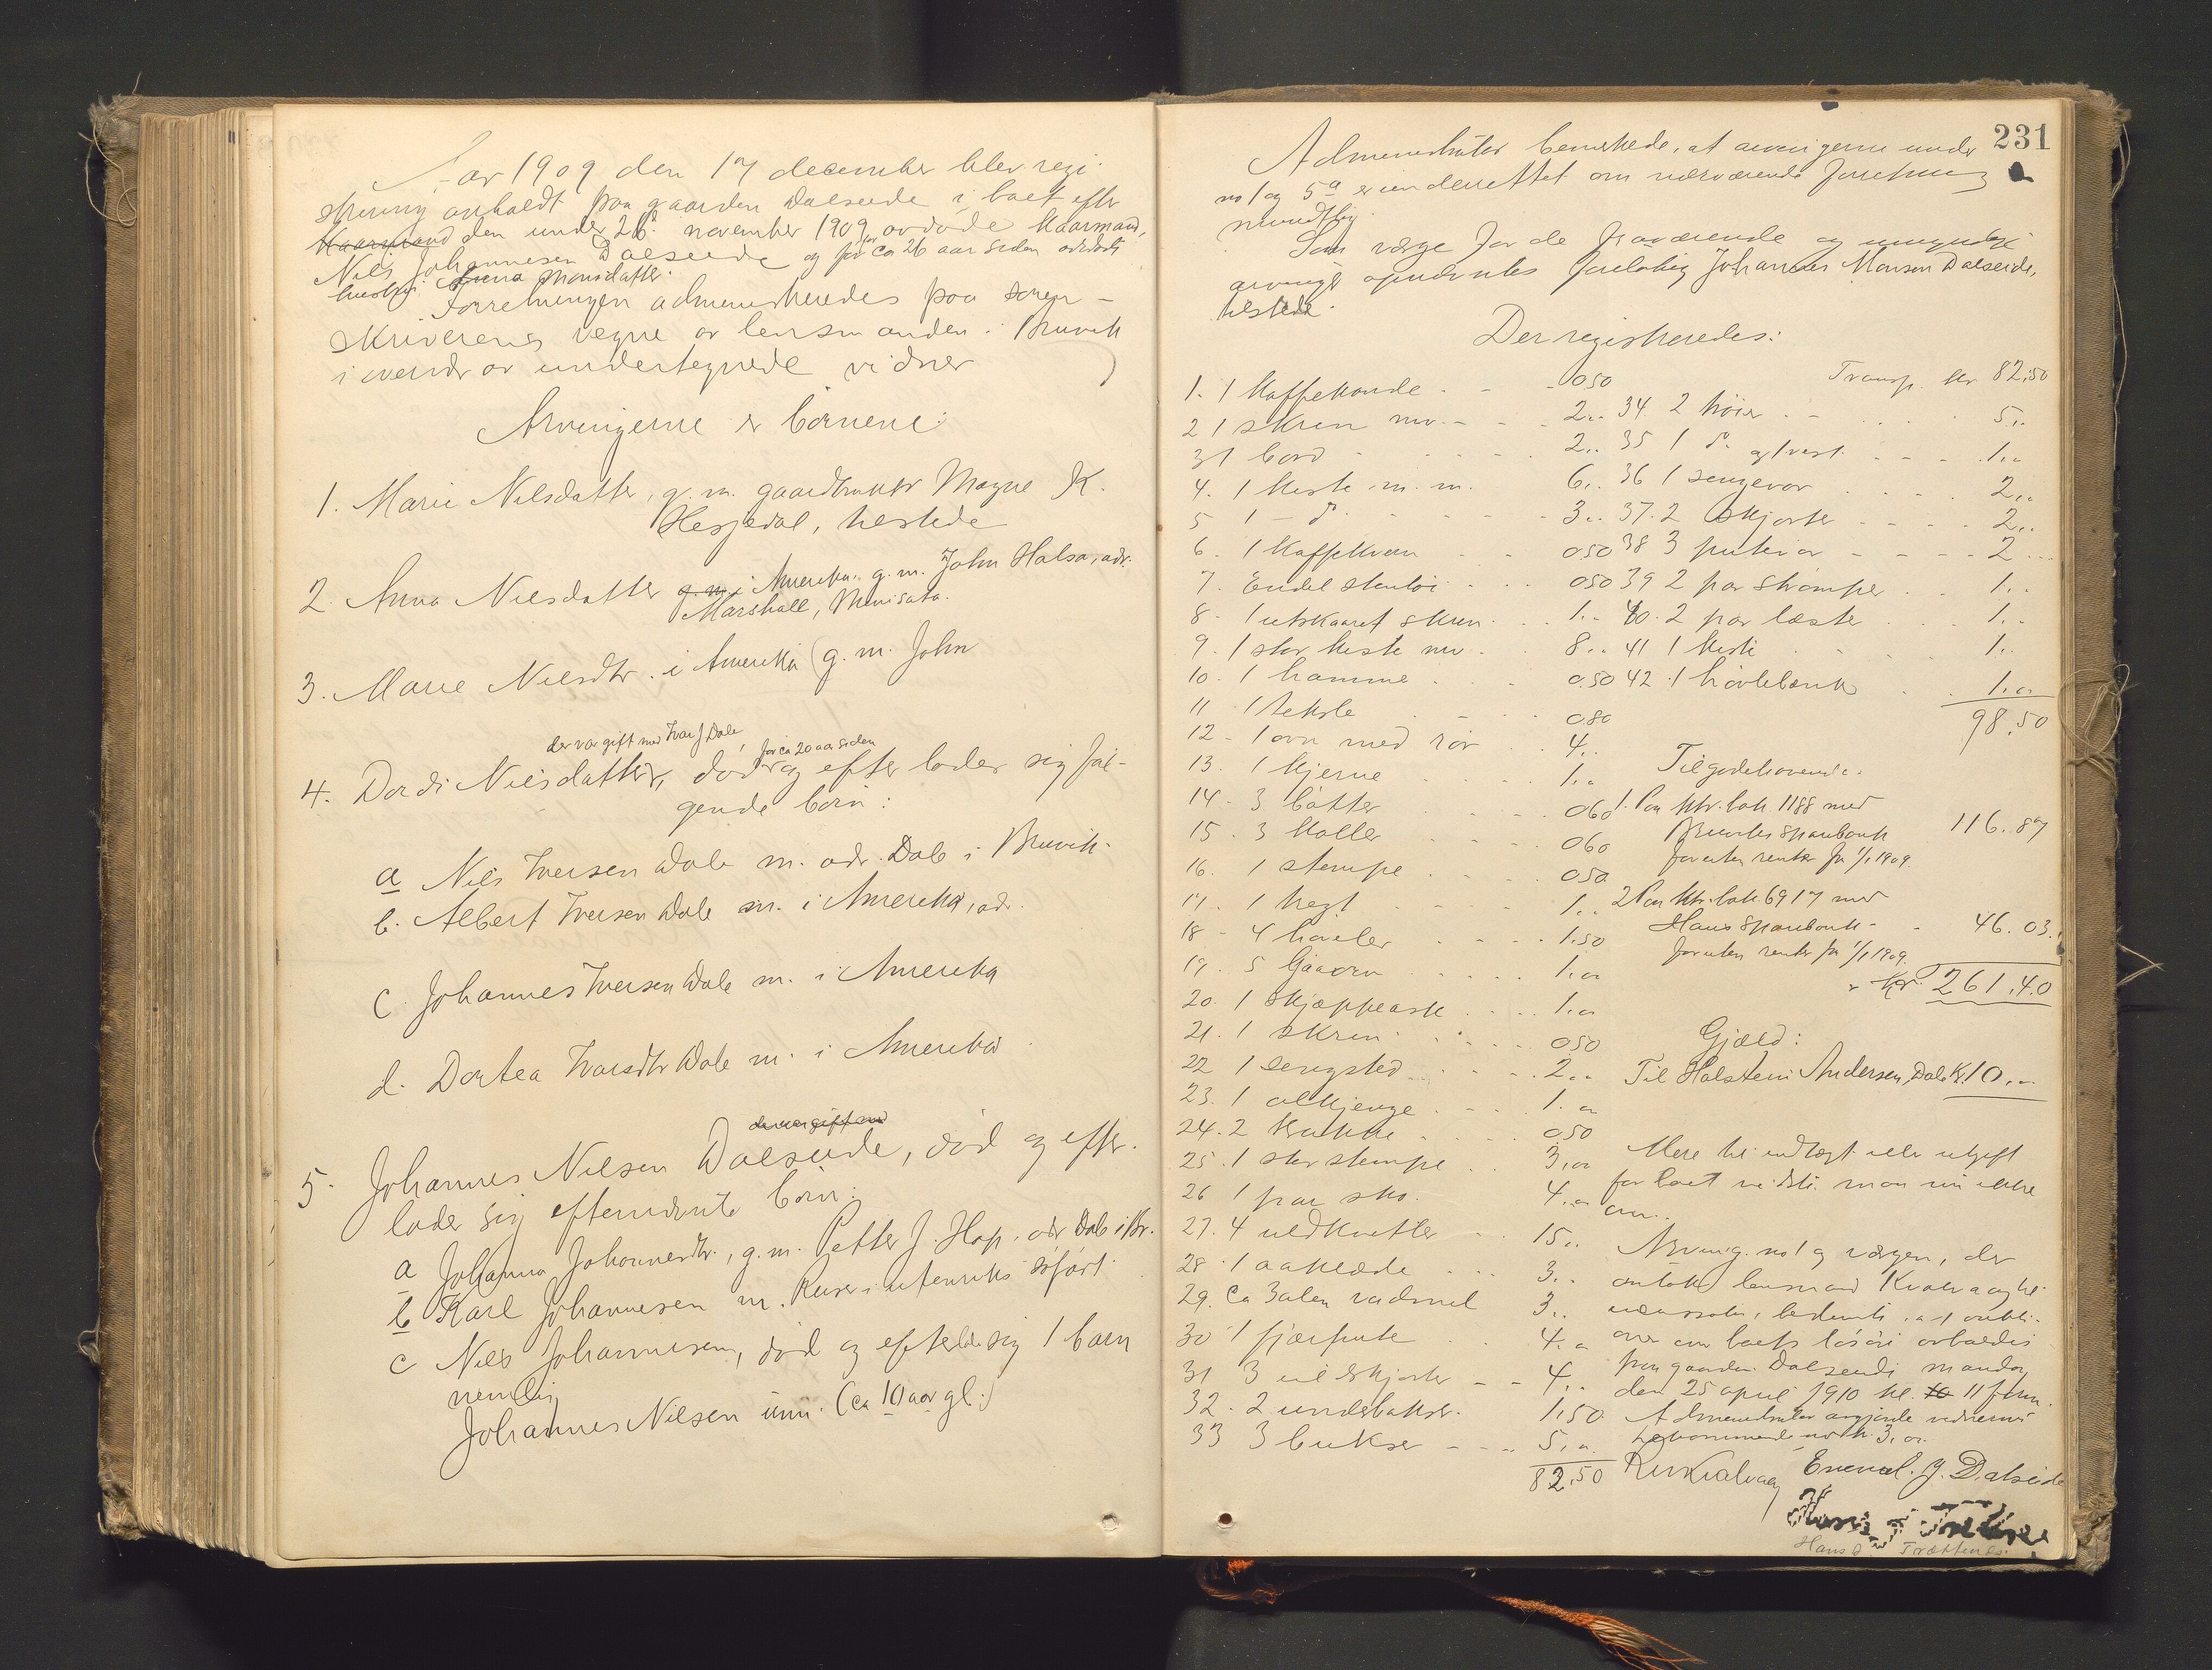 Aar 1909 den 17 december blev regi-
strering avholdt paa gaarden Dalseide i boet efter
Kaarmand den under 26. november 1909 avdøde kaarmand,
Nils Johannesen Dalseide og for ca 26 aar siden avdøde
hustru Anna Monsdatter.
Forretningen administreredes paa soren-
skriverens vegne av lensmanden i Bruvik
i overvær av undertegnede vidner
Arvingerne er børnene:
1. Marie Nilsdatter, g. m. gaardbruker Magne K.
Hesjedal, tilstede
2. Anna Nilsdatter g. m. i Amerika. g. m. John Halsa, adr.
Marshall, Minisota.
3. Marie Nilsdtr. i Amerika (g. m. John
der var gift med Ivar J Dale, for ca 20 aar siden
4. Dordi Nilsdatter, død og efterlader sig føl-
gende børn:
a Nils Iversen Dale m. adr. Dale i Bruvik.
b. Albert Iversen Dale m. i Amerika, adr.
c. Johannes Iversen Dale m. i Amerika
d. Dortea Ivarsdtr Dale m. i Amerika
der var gift med
5. Johannes Nilsen Dalseide, død og efter-
lader sig efternævnte børn:
a Johanna Johannesdtr., g. m. Petter J. Hop, adr Dale i Br.
b Karl Johannesen m. Reiser i utenriks søfart.
c Nils Johannesen, død og efterlader sig 1 barn
nemlig
Johannes Nilsen um. (ca 10 aar gl.)
231
Administrator bemerkede, at arvingerne under
no 1 og 5a er underrettet om nærværende forretning
mundtlig.
Som værge for de fraværende og umyndige
arvinger opnævntes foreløbig Johannes Monsen Dalseide,
tilstede.
Der registreredes:
1. 1 kaffekande - 0.50
2 1 skrin m.v. - - 2..
3 1 bord - 2..
4. 1 kiste m. m. 6..
5 1 - do - 3..
6. 1 kaffekvern 0.50
7. Endel stentøi 0.50
8. 1 utskaaret skrin 1..
9. 1 stor kiste m.v. 8..
10. 1 hammer 0.50
11 1 tekste 0.80
12 - 1 ovn med rør 4..
13. 1 kjerne 1..
14 - 3 bøtter 0.60
15. 3 koller 0.60
16. 1 stampe 0.50
17. 1 hegt 1..
18 - 4 høvler 1.50
19. 5 ljaaorv 1..
20. 1 skjæppeask 1..
21. 1 skrin 0.50
22 1 sengsted 2..
23. 1 ølkjenge 1..
24. 2 krukke 0.50
25. 1 stor stampe 3..
26 1 par sko. 4..
27. 4 uldkufter 15..
28. 1 aaklæde 3..
29. ca 3 alen vadmel 3..
30 1 fjærpute 4..
31 3 uldskjorter - - 4..
32. 2 underbukser. 1.50
33 3 bukser - - - 5..
82.50
Transp. kr 82.50
34. 2 trøier 5..
35 1 do og 1 vest 1..
36 1 sengevar 2..
37. 2 skjorter 2..
38 3 putevar 2
39 2 par strømper 1..
40. 2 par læster 1..
41 1 kiste 1..
42. 1 høvlebænk 1..
98.50
Tilgodehavende.
1. Paa ktr. bok 1188 med
Bruviks sparebank 116.87
foruten renter fra 1/1 1909.
2 Paa ktr. bok. 6917 med
Haus Sparebank - 46.03.
foruten renter fra 1/1 1909.
Kr. 261.40
Gjæld:
Til Halstein Andersen, Dale Kr 10..
Mere til indtægt eller utgift
for boet vidste man nu ikke
om.
Arving no 1 og værgen, der
lensmand Kvalvaag
av boets løsøre avholdes
paa gaarden Dalseide mandag
den 25 april 1910 kl. 10 11 form.
Administrator avgjorde vidnernes
tilkommende med kr. 3,00.
R Kvalvaag Enevald. J. Dalseide
Hans J Trættenes
Hans J. Trættenes.